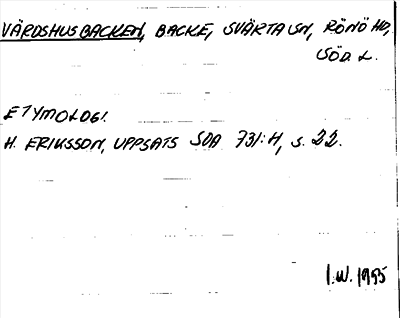 VÄRDSHUSBACKEN, BACKE, SVÄRTA SN, RÖNÖ HD,
SÖD. L.
ETYMOLOGI.
H. ERIKSSON, UPPSATS SOA 731:H, S. 22.
I.W. 1955